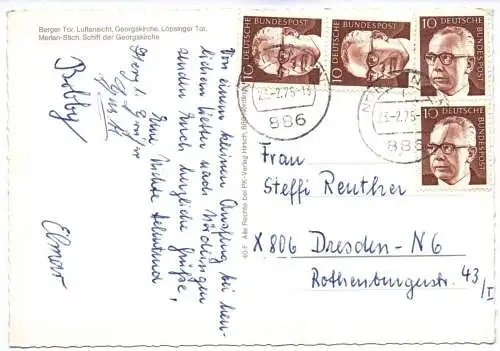 Berger Tor, Luftansicht, Georgskirche, Löpsinger Tor,
Merian-Stich, Schiff der Georgskirche
Von einem kleinen Ausflug bei herr-
lichem Wetter nach Nördlingen
senden Euch herzliche Grüße,
Eure
Bobby
Elmar
40 F Alle Rechte bei PK-Verlag Hirsch,
10 DEUTSCHE BUNDESPOST
10 DEUTSCHE BUNDESPOST
10 DEUTSCHE BUNDESPOST
10 DEUTSCHE BUNDESPOST
23.-2.75-13
886
23.-2.75
886
Frau
Steffi Reuther
X 806 Dresden-N6
Rothenburgerstr. 43/I